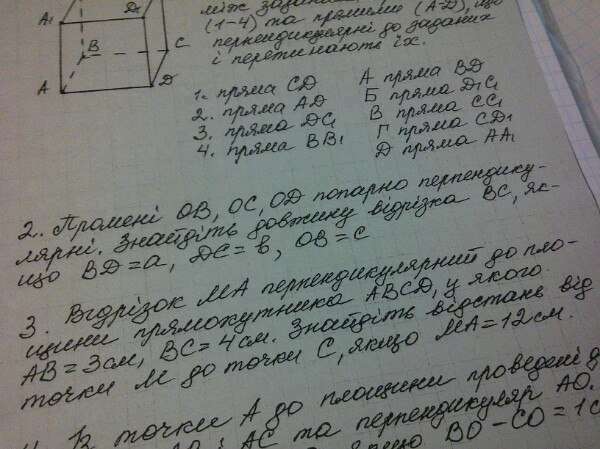 A₁
D₁
B
C
A
D
між
(1-4) та прямими (А-Д), що
перпендикулярні до заданих
і перетинають їх.
1. пряма CD А пряма BD
2. пряма AD Б пряма D₁C
3. пряма DC₁ В пряма CC₁
4. пряма BB₁ Г пряма CD₁
Д пряма AA₁
2. Промені OB, OC, OD попарно перпендику-
лярні. Знайдіть довжину відрізка BC, як-
що BD=a, DC=b, OB=c
3. Відрізок MA перпендикулярний до пло-
щини прямокутника ABCD, у якого
AB=3см, BC=4см. Знайдіть відстань від
точки M до точки C, якщо MA=12см.
точки A до площини проведені
AC та перпендикуляр AO.
BO-CO=1